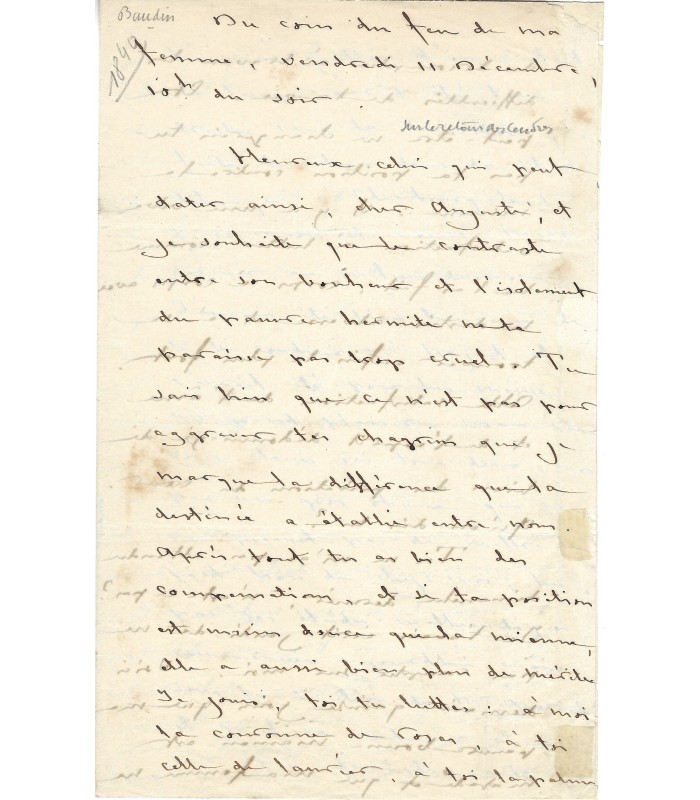 Baudin
1849
Du coin du feu de ma
femme, vendredi 11 Décembre,
10h du soir.
sur le retour des Cendres
Heureux celui qui peut
dater ainsi, cher Auguste, et
je souhaite que le contraste
entre son bonheur et l'isolement
du pauvre hermite ne te
paraisse pas trop cruel. Tu
sais bien que ce n'est pas pour
aggraver tes chagrins que je
marque la différence que la
destinée a établie entre nous.
Après tout tu as bien des
compensations, et si ta position
est moins douce que la mienne,
elle a aussi bien plus de mérite
Je jouis, toi tu luttes : à moi
la couronne de roses, à toi
celle de laurier, à toi la palme